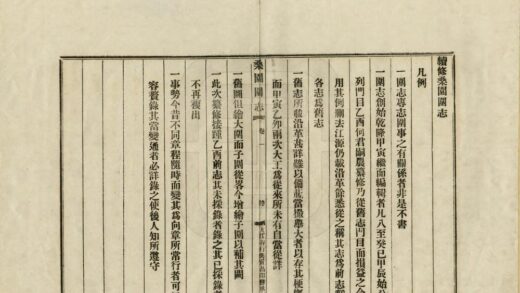 續修桑園圍志
凡例
一圍志專志圍事之有關係者非是不書
一圍志創始乾隆甲寅繼而編輯者凡八至癸已甲長始
列門目乙酉何君嗣農纂修乃從舊志門目而損益之今
用其例剛去江源仍載沿革餘悉從之稱其志為前志
各志為舊志
一舊志所載沿革甚詳難以備載當撮舉大者以存其梗
而甲寅乙卯兩次大工為從來所未有自當從詳
桑園圍志
卷一
一舊圍但繪大圍而子圍從畧今增繪子圍以補其闕
一此次纂修接踵乙酉前志其未採錄者錄之其已採錄者
不再複出
一事勢今昔不同章程隨時而變其為向章所常行者可
容舊錄其當變通者必詳錄之使後人知所遵守